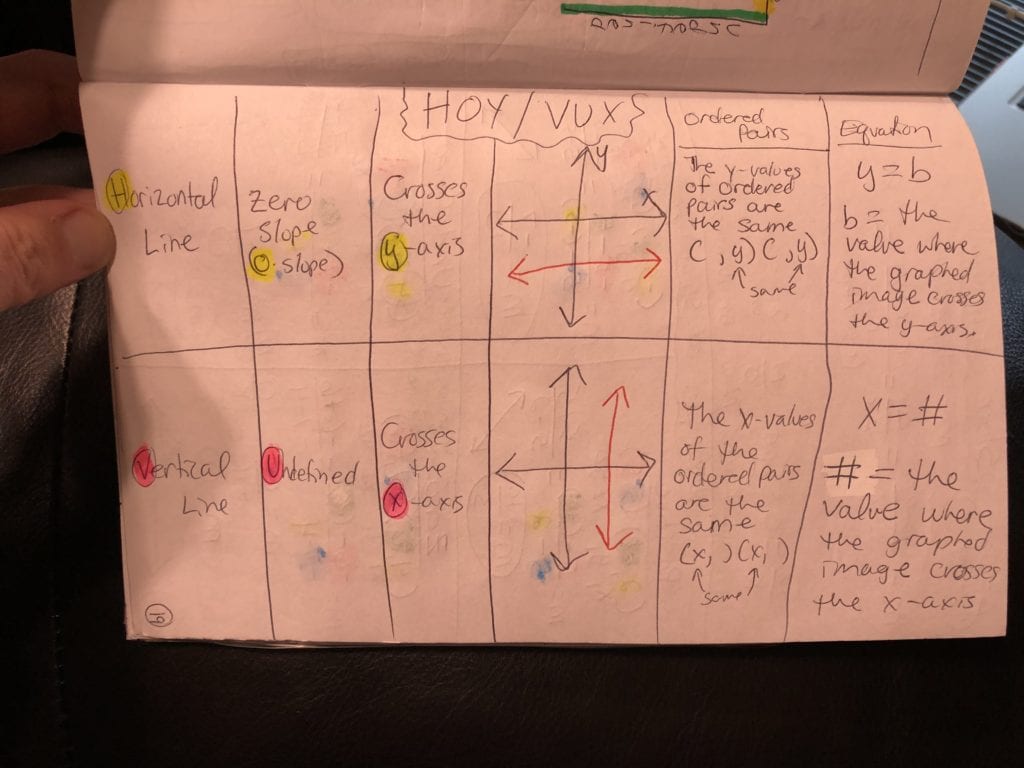 {HOY/VUX}
Horizontal
Line
Zero
Slope
(0 slope)
Crosses
the
y-axis
y
x
Ordered
Pairs
The y-values
of ordered
pairs are
the same
( , y) ( , y)
same
Equation
y = b
b = the
value where
the graphed
image crosses
the y-axis.
Vertical
Line
Undefined
Crosses
the
x-axis
The x-values
of the
ordered pairs
are the
same
(x, ) (x, )
same
X = #
# = the
value where
the graphed
image crosses
the x-axis